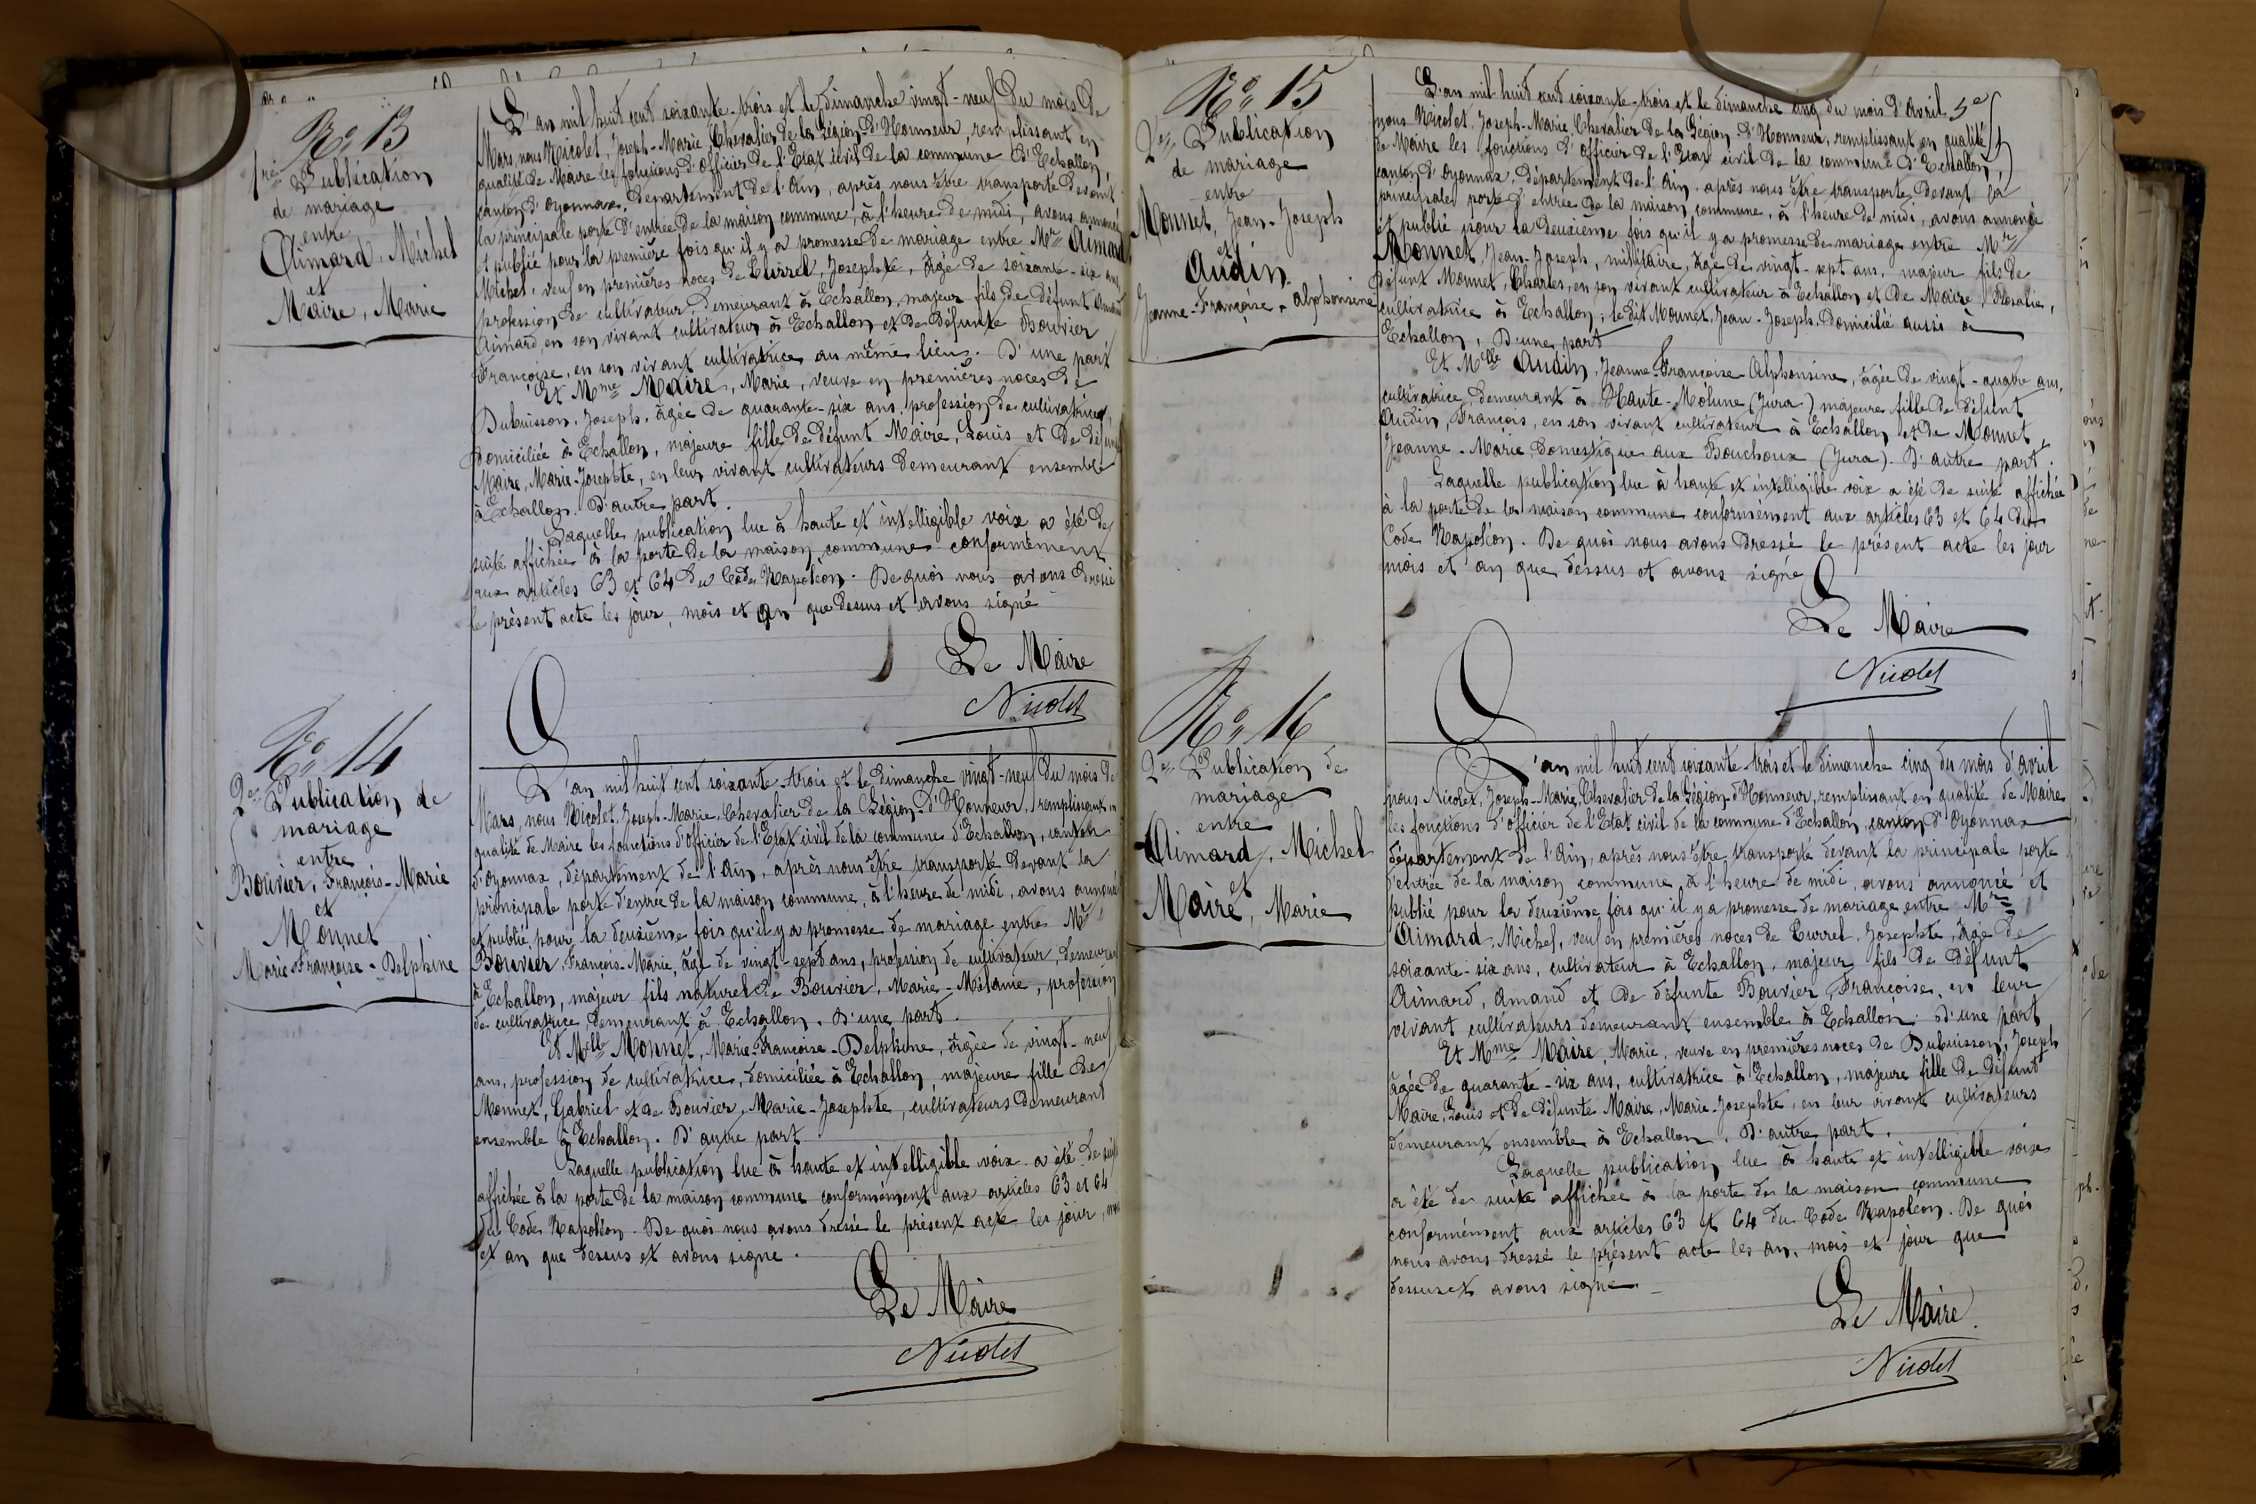 No 13
1re Publication
de mariage
entre
Aimard, Michel
et
Maire, Marie
L'an mil huit cent soixante-trois et le dimanche vingt-neuf du mois de
Mars, nous Nicolet, Joseph-Marie, Chevalier de la Légion-d'Honneur, remplissant en
qualité de Maire les fonctions d'Officier de l'Etat civil de la commune d'Echallon,
canton d'Oyonnax, département de l'Ain, après nous être transporté devant
la principale porte d'entrée de la maison commune, à l'heure de midi, avons annoncé
et publié pour la première fois qu'il y a promesse de mariage entre Mr Aimard
Michel, veuf en premières noces de Currel, Josephte, âgé de soixante-six ans,
profession de cultivateur, demeurant à Echallon, majeur fils de défunt Amand
Aimard, en son vivant cultivateur à Echallon et de défunte Bouvier
Françoise, en son vivant cultivatrice au même lieu. D'une part
Et Mme Maire, Marie, veuve en premières noces de
Dubuisson, Joseph, âgée de quarante-six ans, profession de cultivatrice,
domiciliée à Echallon, majeure fille de défunt Maire, Louis et de défunte
Maire, Marie-Josephte, en leur vivant cultivateurs demeurant ensemble
à Echallon. D'autre part.
Laquelle publication lue à haute et intelligible voix a été de
suite affichée à la porte de la maison commune conformément
aux articles 63 et 64 du Code Napoléon. De quoi nous avons dressé
le présent acte les jour, mois et an que dessus et avons signé
Le Maire
Nicolet
No 14
2e Publication de
mariage
entre
Bouvier, François-Marie
et
Monnet
Marie-Françoise-Delphine
L'an mil huit cent soixante-trois et le dimanche vingt-neuf du mois de
Mars, nous Nicolet, Joseph-Marie, Chevalier de la Légion-d'Honneur, remplissant en
qualité de Maire les fonctions d'Officier de l'Etat civil de la commune d'Echallon, canton
d'Oyonnax, département de l'Ain, après nous être transporté devant la
principale porte d'entrée de la maison commune, à l'heure de midi, avons annoncé
et publié, pour la deuxième fois qu'il y a promesse de mariage entre Mr
Bouvier, François-Marie, âgé de vingt-sept ans, profession de cultivateur, demeurant
à Echallon, majeur fils naturel de Bouvier, Marie-Mélanie, profession
de cultivatrice, demeurant à Echallon. D'une part.
Et Melle Monnet, Marie-Françoise-Delphine, âgée de vingt-neuf
ans, profession de cultivatrice, domiciliée à Echallon, majeure fille de
Monnet, Gabriel et de Bouvier, Marie-Josephte, cultivateurs demeurant
ensemble à Echallon. D'autre part
Laquelle publication lue à haute et intelligible voix a été de suite
affichée à la porte de la maison commune conformément aux articles 63 et 64
du Code Napoléon. De quoi nous avons dressé le présent acte les jour, mois
et an que dessus et avons signé.
Le Maire
Nicolet
No 15
2e Publication
de mariage
entre
Monnet, Jean-Joseph
et
Audin
Jeanne-Françoise-Alphonsine
L'an mil huit cent soixante-trois et le dimanche cinq du mois d'Avril
nous Nicolet, Joseph-Marie, Chevalier de la Légion-d'Honneur, remplissant en qualité
de Maire les fonctions d'officier de l'Etat civil de la commune d'Echallon,
canton d'Oyonnax, département de l'Ain, après nous être transporté devant la
principale porte d'entrée de la maison commune, à l'heure de midi, avons annoncé
et publié pour la deuxième fois qu'il y a promesse de mariage entre Mr
Monnet, Jean-Joseph, militaire, âgé de vingt-sept ans, majeur fils de
défunt Monnet, Charles, en son vivant cultivateur à Echallon et de Maire, Rosalie,
cultivatrice à Echallon, ledit Monnet, Jean-Joseph, domicilié aussi à
Echallon, D'une part
Et Melle Audin, Jeanne-Françoise Alphonsine, âgée de vingt-quatre ans,
cultivatrice, demeurant à Haute-Molune (Jura) majeure fille de défunt
Audin, François, en son vivant cultivateur à Echallon et de Monnet
Jeanne-Marie, domestique aux Bouchoux (Jura). D'autre part.
Laquelle publication lue à haute et intelligible voix a été de suite affichée
à la porte de la maison commune conformément aux articles 63 et 64 du
Code Napoléon. De quoi nous avons dressé le présent acte les jour
mois et an que dessus et avons signé
Le Maire
Nicolet
No 16
2e Publication de
mariage
entre
Aimard, Michel
et
Maire, Marie
L'an mil huit cent soixante trois et le dimanche cinq du mois d'avril
nous Nicolet, Joseph-Marie, Chevalier de la Légion-d'Honneur, remplissant en qualité de Maire
les fonctions d'officier de l'Etat civil de la commune d'Echallon, canton d'Oyonnax
département de l'Ain, après nous être transporté devant la principale porte
d'entrée de la maison commune, à l'heure de midi, avons annoncé et
publié pour la deuxième fois qu'il y a promesse de mariage entre Mr
Aimard, Michel, veuf en premières noces de Currel, Josephte, âgé de
soixante-six ans, cultivateur à Echallon, majeur fils de défunt
Aimard, Amand et de défunte Bouvier, Françoise, en leur
vivant cultivateurs demeurant ensemble à Echallon. D'une part
Et Mme Maire, Marie, veuve en premières noces de Dubuisson, Joseph
âgée de quarante-six ans, cultivatrice à Echallon, majeure fille de défunt
Maire, Louis et de défunte Maire, Marie-Josephte, en leur vivant cultivateurs
demeurant ensemble à Echallon. D'autre part.
Laquelle publication lue à haute et intelligible voix
a été de suite affichée à la porte de la maison commune
conformément aux articles 63 et 64 du Code Napoléon. De quoi
nous avons dressé le présent acte les an, mois et jour que
dessus et avons signé.
Le Maire
Nicolet